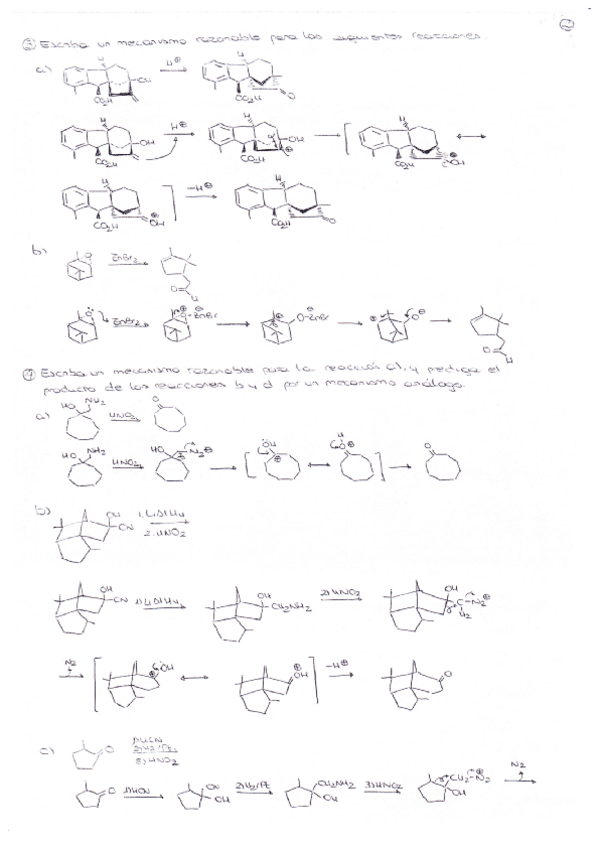 ③ Escriba un mecanismo razonable para las siguientes reacciones.
a)
H
OH
H⊕
H
CO2H
CO2H
O
H
OH
H⊕
H
OH
H
CO2H
CO2H
⊕
CO2H
OH
H
-H⊕
H
CO2H
OH
CO2H
O
b)
O
ZnBr2
O
H
O
ZnBr2
O-ZnBr
O-ZnBr
O
O
H
④ Escriba un mecanismo razonable para la reacción a), y prediga el
producto de las reacciones b y d por un mecanismo análogo.
a)
HO
NH2
HNO2
O
HO
NH2
HNO2
HO
N2⊕
OH
OH
O
b)
OH
CN
1. LiAlH4
2. HNO2
OH
CN
1) LiAlH4
OH
CH2NH2
2) HNO2
OH
C
N2⊕
H2
N2
OH
OH
-H⊕
O
c)
O
1) HCN
2) H2/Pt
3) HNO2
O
1) HCN
CN
OH
2) H2/Pt
CH2NH2
OH
3) HNO2
CH2-N2⊕
OH
N2